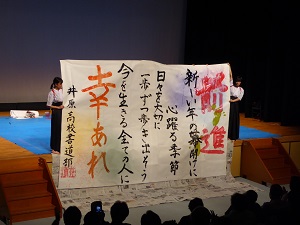 前進
新しい年の幕開けに
心躍る季節
日々を大切に
一歩ずつ歩き出そう
今を生きる全ての人に
幸あれ
井原高校書道部